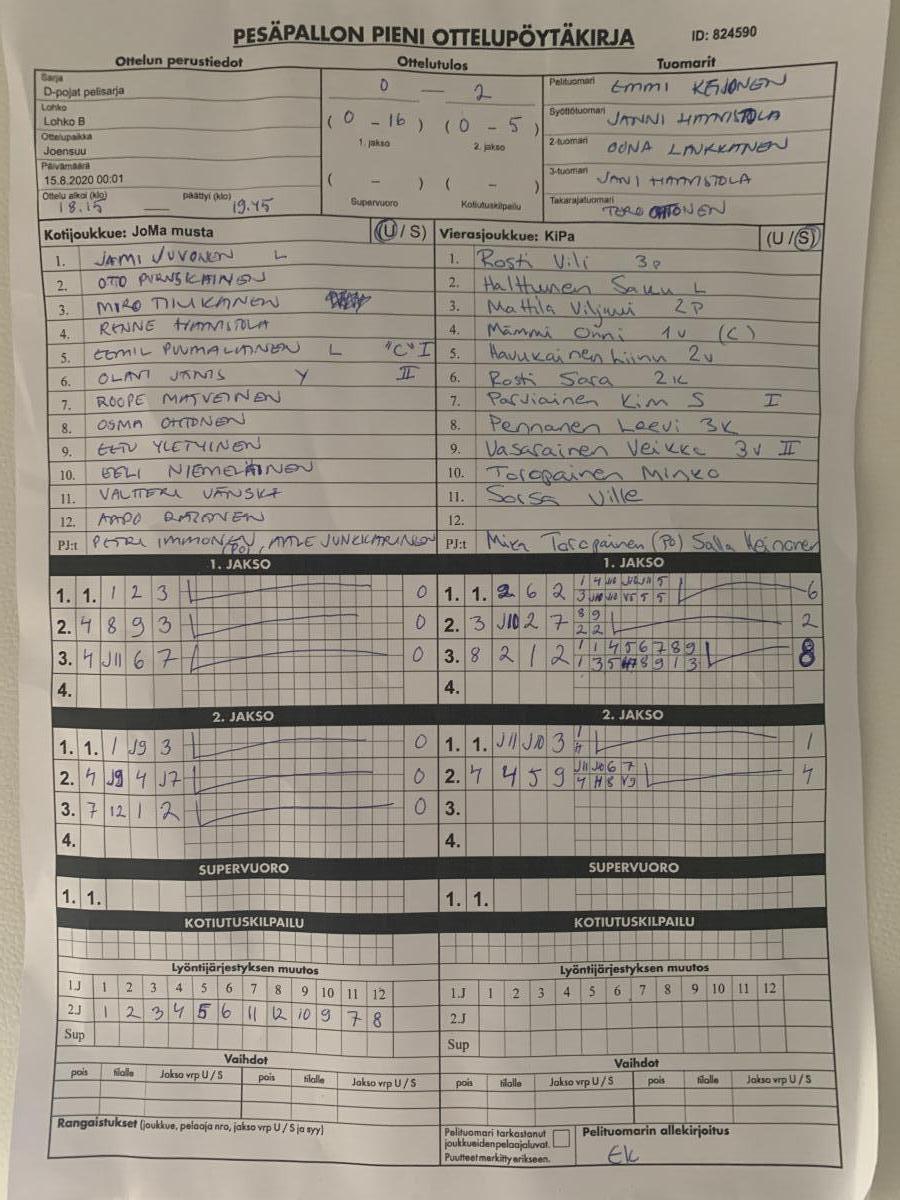 PESÄPALLON PIENI OTTELUPÖYTÄKIRJA
ID: 824590
Ottelun perustiedot
Ottelutulos
Tuomarit
Sarja
D-pojat pelisarja
Lohko
Lohko B
Ottelupaikka
Joensuu
Päivämäärä
15.8.2020 00:01
Ottelu alkoi (klo) päättyi (klo)
18.15 — 19.45
0 — 2
(0 - 16) (0 - 5)
1. jakso 2. jakso
( - ) ( - )
Supervuoro Kotiutuskilpailu
Pelituomari EMMI KEIJONEN
Syöttötuomari JANNI HAMISTOLA
2-tuomari OONA LAUKKANEN
3-tuomari JANI HAMISTOLA
Takarajatuomari TERO OHTONEN
Kotijoukkue: JoMa musta (U/S)
1. JAMI JUVONEN L
2. OTTO
3. MIRO TIMKANEN
4. RENNE HAMISTOLA
5. EEMIL PUUMALAINEN L "C" I
6. OLAVI JÄNIS Y II
7. ROOPE MATVEINEN
8. OSMA OHTONEN
9. EETU YLETYINEN
10. EELI NIEMELÄINEN
11. VALTTERI VÄNSKÄ
12. AAPO
PJ:t PETRI IMMONEN (PO), AATLE JUNKKARINEN
Vierasjoukkue: KiPa (U/S)
1. Rosti Vili 3p
2. Halttunen Saku L
3. Mattila Viljami 2p
4. Mämmi Onni 1v (C)
5. Havukainen Linnu 2v
6. Rosti Sara 2k
7. Parviainen Kim S I
8. Pennanen Leevi 3k
9. Vasarainen Veikka 3v II
10. Toropainen Minko
11. Sorsa Ville
12.
PJ:t Mika Toropainen (Po) Salla Keinonen
1. JAKSO
1. 1. 1 2 3 0
2. 4 8 9 3 0
3. 4 J11 6 7 0
4.
1. JAKSO
1. 1. 2 6 2 6
2. 3 J10 2 7 8 9 2
2 2
3. 8 2 1 2 1 1 4 5 6 7 8 9 8
4.
2. JAKSO
1. 1. 1 J9 3 0
2. 4 J9 4 J7 0
3. 7 12 1 2 0
4.
2. JAKSO
1. 1. J11 J10 3 1 1
4
2. 4 4 5 9 J11 J10 6 7 4
3.
4.
SUPERVUORO
1. 1.
SUPERVUORO
1. 1.
KOTIUTUSKILPAILU
KOTIUTUSKILPAILU
Lyöntijärjestyksen muutos
1.J 1 2 3 4 5 6 7 8 9 10 11 12
2.J 1 2 3 4 5 6 11 12 10 9 7 8
Sup
Lyöntijärjestyksen muutos
1.J 1 2 3 4 5 6 7 8 9 10 11 12
2.J
Sup
Vaihdot
pois tilalle Jakso vrp U / S pois tilalle Jakso vrp U / S
Vaihdot
pois tilalle Jakso vrp U / S pois tilalle Jakso vrp U / S
Rangaistukset (joukkue, pelaaja nro, jakso vrp U / S ja syy)
Pelituomari tarkastanut
joukkueidenpelaajaluvat.
Puutteetmerkittyerikseen.
Pelituomarin allekirjoitus
EK